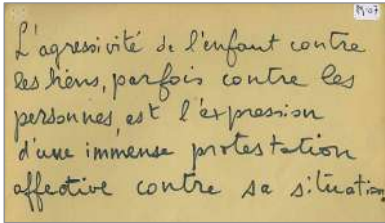 19.07
L'agressivité de l'enfant contre
les liens, parfois contre les
personnes, est l'expression
d'une immense protestation
affective contre sa situation